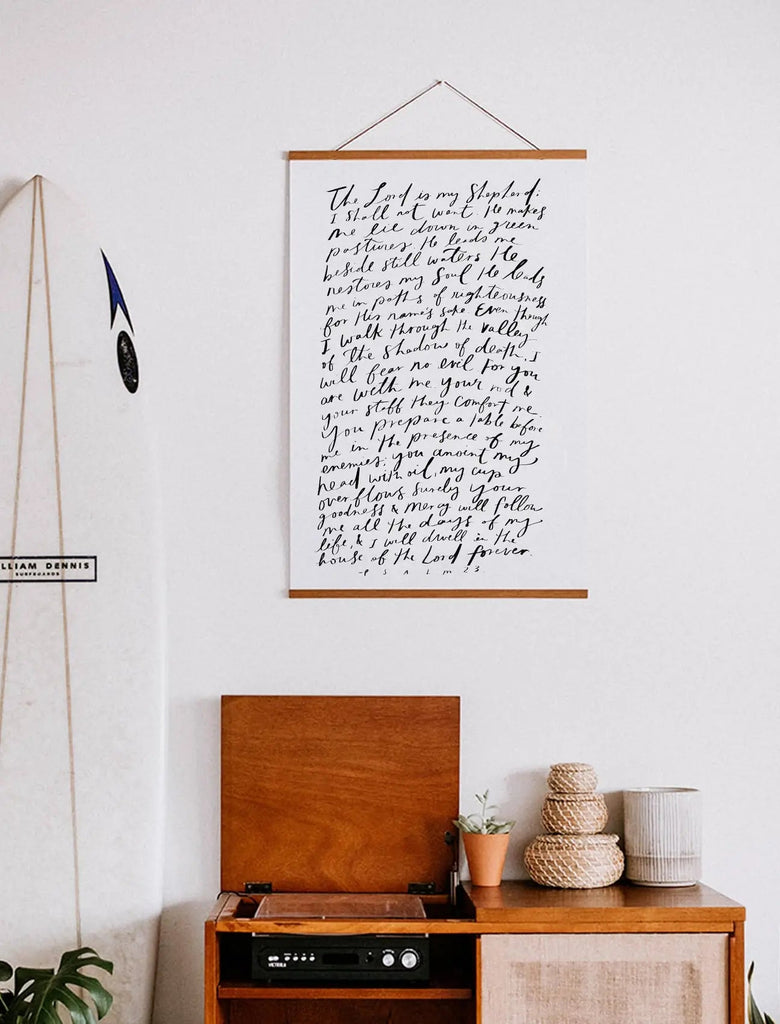 The Lord is my Shepherd;
I shall not want. He makes
me lie down in green
pastures. He leads me
beside still waters. He
restores my soul. He leads
me in paths of righteousness
for His name's sake. Even though
I walk through the valley
of the shadow of death, I
will fear no evil for you
are with me. Your rod &
your staff they comfort me.
You prepare a table before
me in the presence of my
enemies; you anoint my
head with oil, my cup
overflows surely your
goodness & mercy will follow
me all the days of my
life, & I will dwell in the
house of the Lord forever.
-PSALM 23
LLIAM DENNIS
SURFBOARDS
VICTROLA